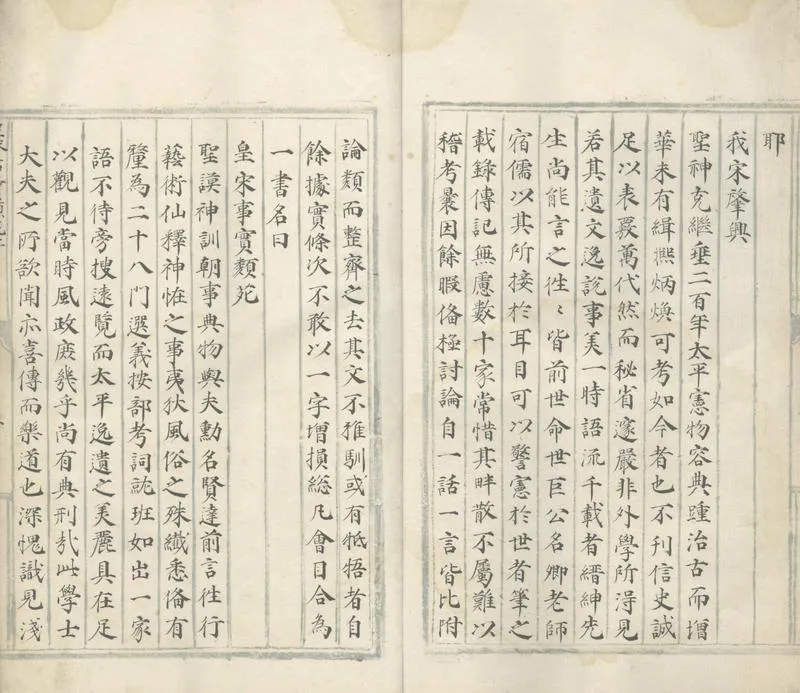 耶
我宋肇興
聖神克繼垂二百年太平憲物容典踵治古而增
華未有緝熈炳煥可考如今者也不刊信史誠
足以表覈萬代然而秘省邃嚴非外學所得見
若其遺文逸說事美一時語流千載者縉紳先
生尚能言之徃〻皆前世命世巨公名卿老師
宿儒以其所接於耳目可以警憲於世者筆之
載錄傳記無慮數十家常惜其畔散不屬難以
稽考曩因餘暇俻極討論自一話一言皆比附
論類而整齊之去其文不雅馴或有牴牾者自
餘據實條次不敢以一字增損総凡會目合為
一書名曰
皇宋事實類苑
聖謨神訓朝事典物與夫勳名賢達前言徃行
藝術仙釋神恠之事夷狄風俗之殊纎悉俻有
釐為二十八門選義按部考詞就班如出一家
語不待旁搜遠覽而太平逸遺之美麗具在足
以觀見當時風政庻幾乎尚有典刑㢤此學士
大夫之所欲聞亦喜傳而樂道也深愧識見淺